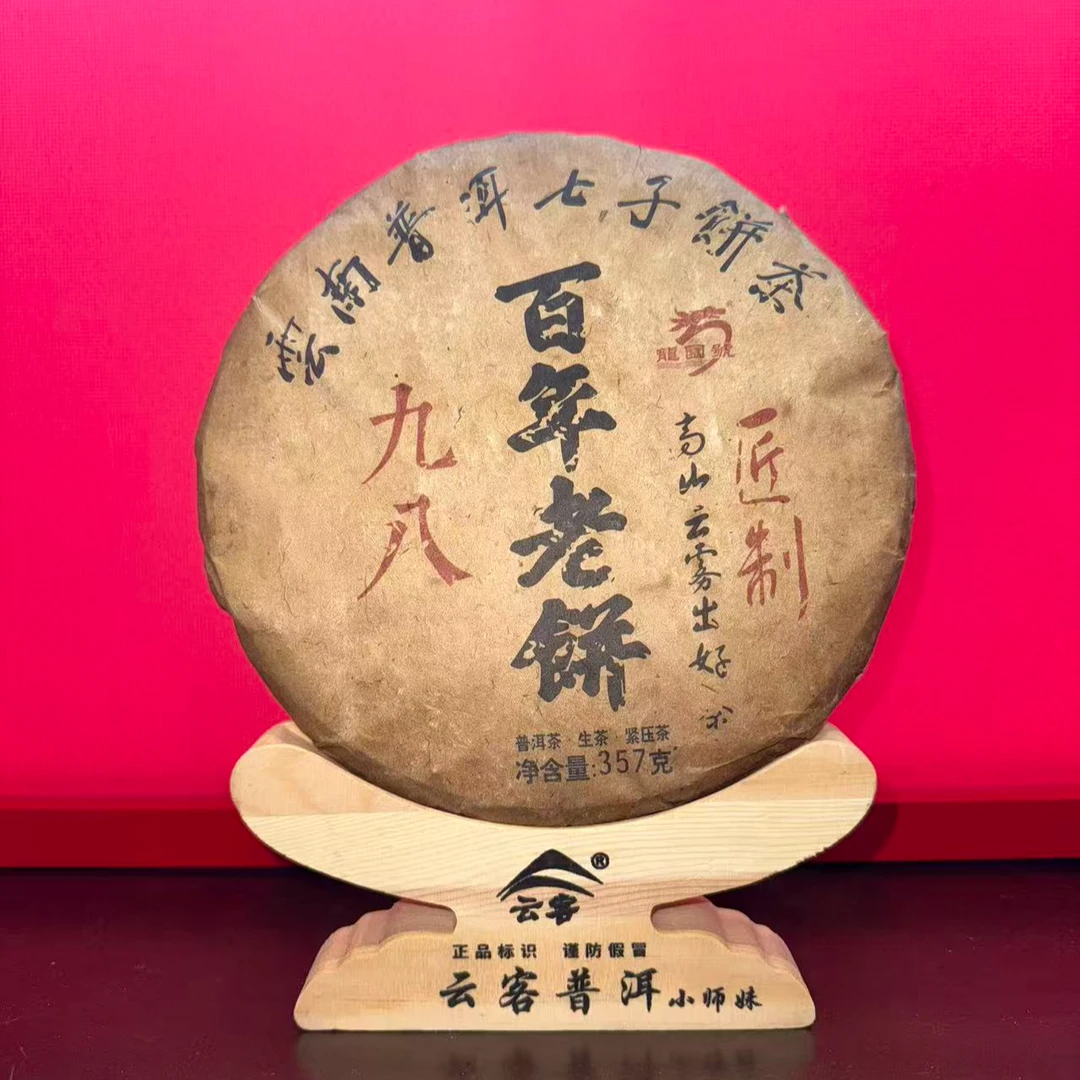 雲南普洱七子餅茶
百年老餅
九八
龍國號
匠制
高山云雾出好茶
普洱茶·生茶·紧压茶
净含量:357克
云客®
正品标识 谨防假冒
云客普洱小师妹